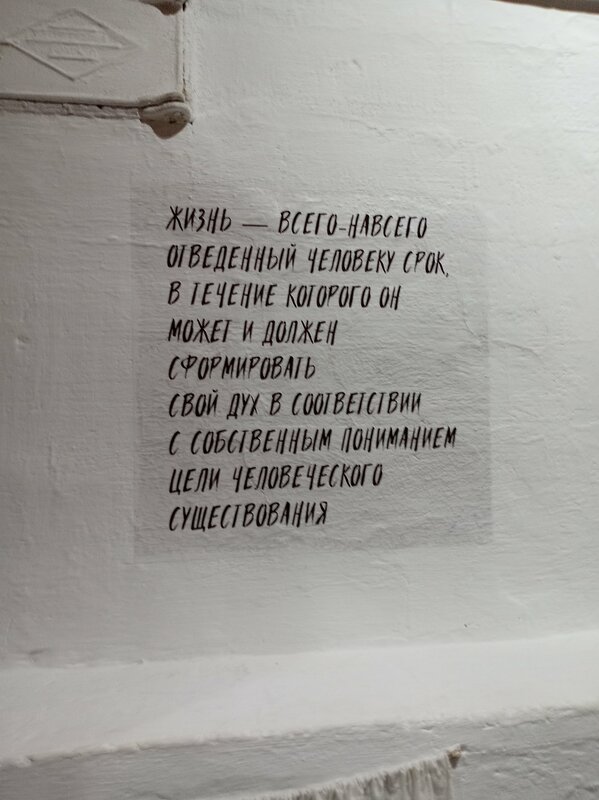 ЖИЗНЬ — ВСЕГО-НАВСЕГО
ОТВЕДЕННЫЙ ЧЕЛОВЕКУ СРОК,
В ТЕЧЕНИЕ КОТОРОГО ОН
МОЖЕТ И ДОЛЖЕН
СФОРМИРОВАТЬ
СВОЙ ДУХ В СООТВЕТСТВИИ
С СОБСТВЕННЫМ ПОНИМАНИЕМ
ЦЕЛИ ЧЕЛОВЕЧЕСКОГО
СУЩЕСТВОВАНИЯ